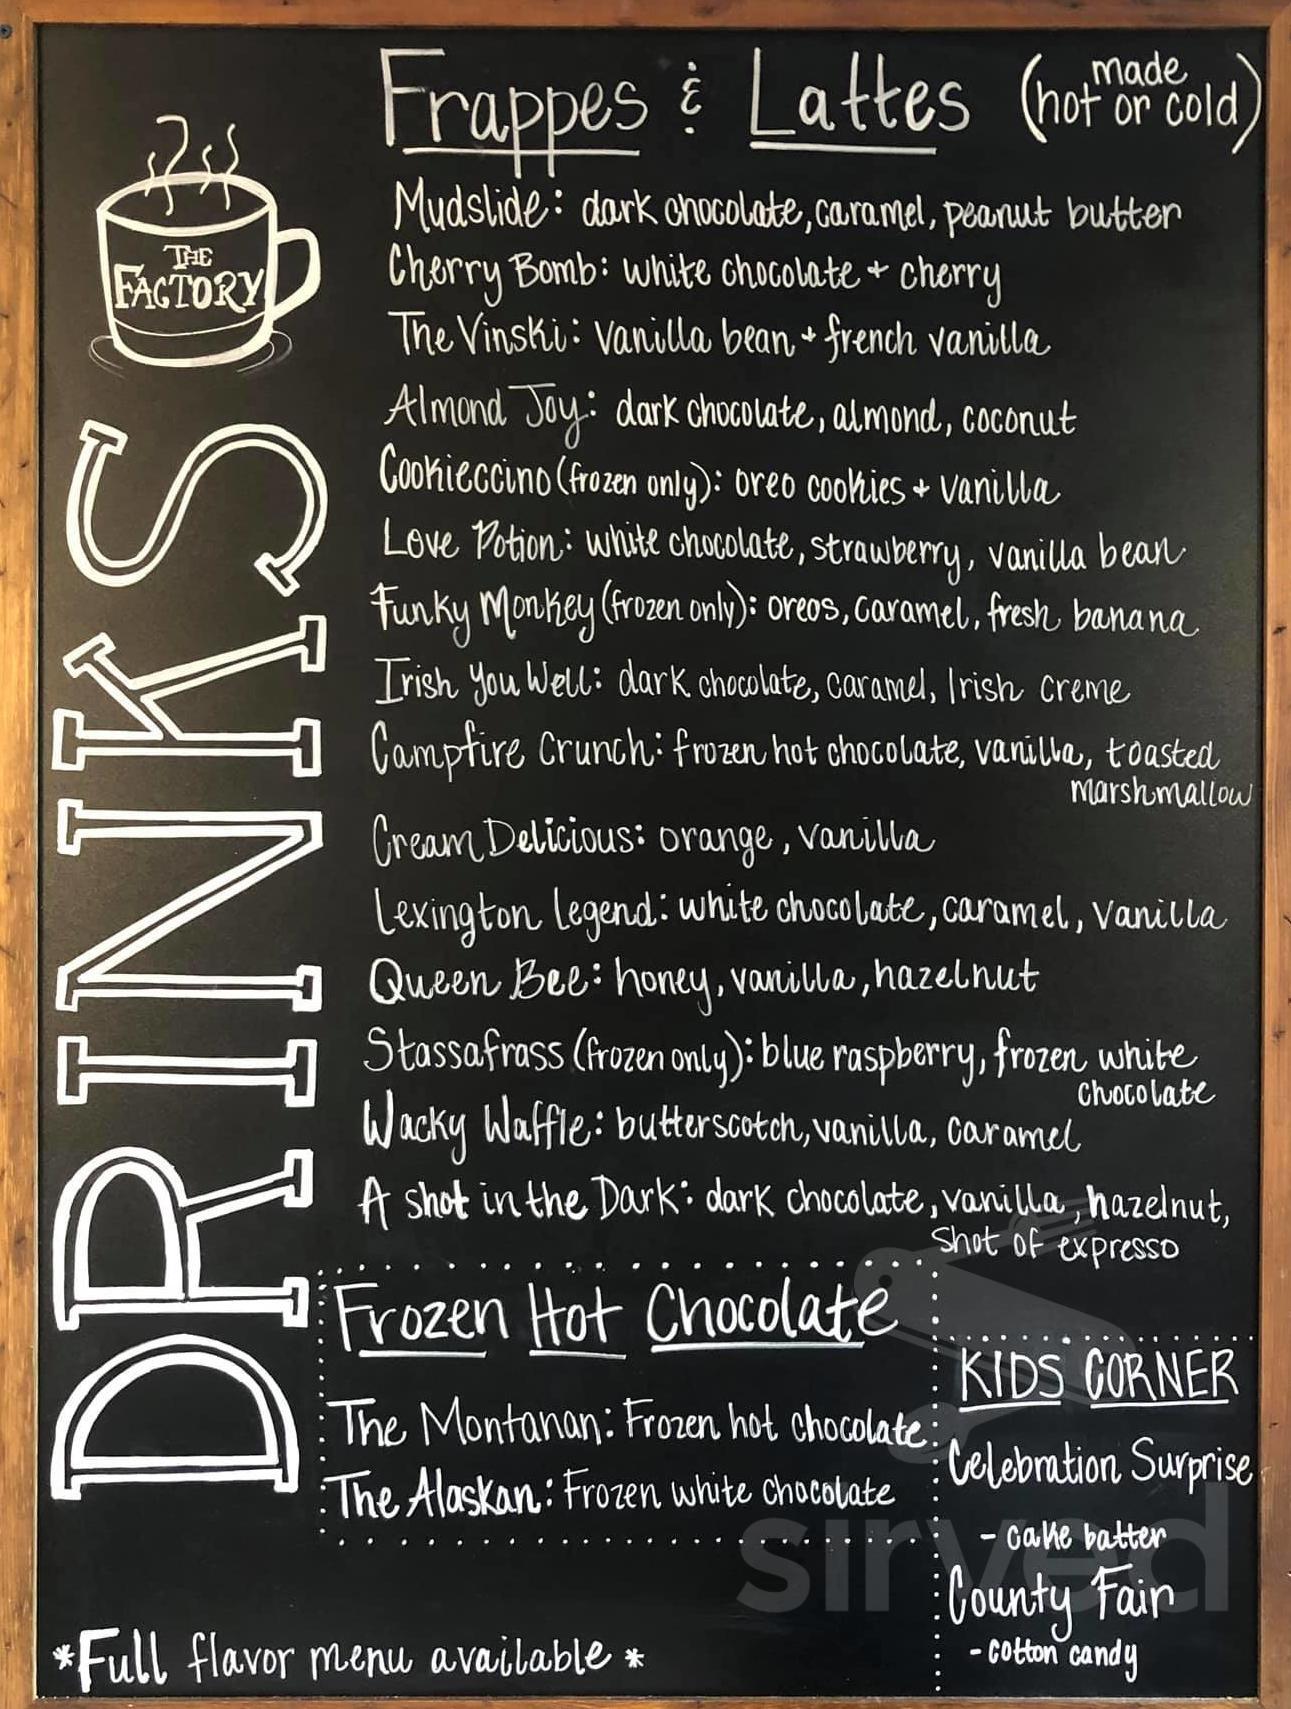 Frappes & Lattes (made hot or cold)
THE
FACTORY
DRINKS
Mudslide: dark chocolate, caramel, peanut butter
Cherry Bomb: white chocolate + cherry
The Vinski: vanilla bean + french vanilla
Almond Joy: dark chocolate, almond, coconut
Cookieccino (frozen only): oreo cookies + vanilla
Love Potion: white chocolate, strawberry, vanilla bean
Funky Monkey (frozen only): oreos, caramel, fresh banana
Irish You Well: dark chocolate, caramel, Irish creme
Campfire Crunch: frozen hot chocolate, vanilla, toasted
marshmallow
Cream Delicious: orange, vanilla
Lexington Legend: white chocolate, caramel, vanilla
Queen Bee: honey, vanilla, hazelnut
Stassafrass (frozen only): blue raspberry, frozen white
chocolate
Wacky Waffle: butterscotch, vanilla, caramel
A shot in the Dark: dark chocolate, vanilla, hazelnut,
shot of expresso
Frozen Hot Chocolate
The Montanan: Frozen hot chocolate
The Alaskan: Frozen white chocolate
KIDS CORNER
Celebration Surprise
- cake batter
County Fair
- cotton candy
*Full flavor menu available*
sirved